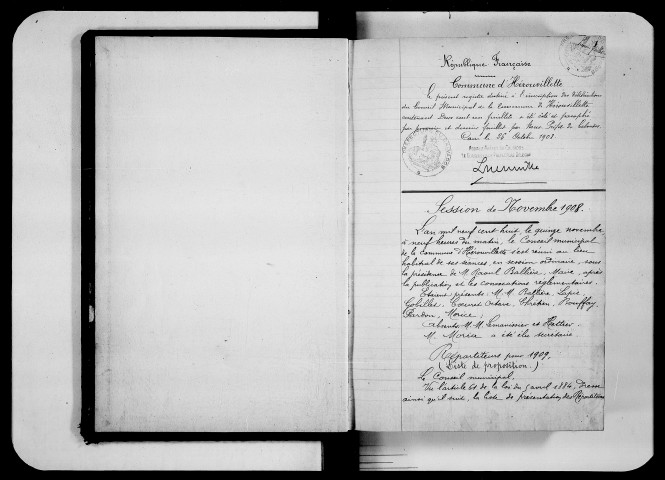 République Française
Commune d'Hérouvillette
Le présent registre destiné à l'inscription des délibérations
du Conseil Municipal de la Commune de Hérouvillette
contenant Deux cent feuillets a été coté et paraphé
par premier et dernier feuillet par Nous Préfet du Calvados
Caen le 26 Octobre 1908
Session de Novembre 1908.
L'an mil neuf cent huit, le quinze novembre
à neuf heures du matin, le Conseil municipal
de la commune d'Hérouvillette s'est réuni au lieu
habituel de ses séances, en session ordinaire, sous
la présidence de M. Raoul Ballière, Maire, après
la publication et les convocations réglementaires.
Etaient présents: M. M. Ballière, Lapie
Gobillet, Octave, Chrétien, Bouffay,
Pardon, Morice;
Absents: M. M. Lemanissier et
M. Morice a été élu secrétaire.
Répartiteurs pour 1909,
(Liste de proposition.)
Le Conseil municipal,
Vu l'article 61 de la loi du 5 avril 1884, Dresse
ainsi qu'il suit, la liste de présentation des Répartiteurs